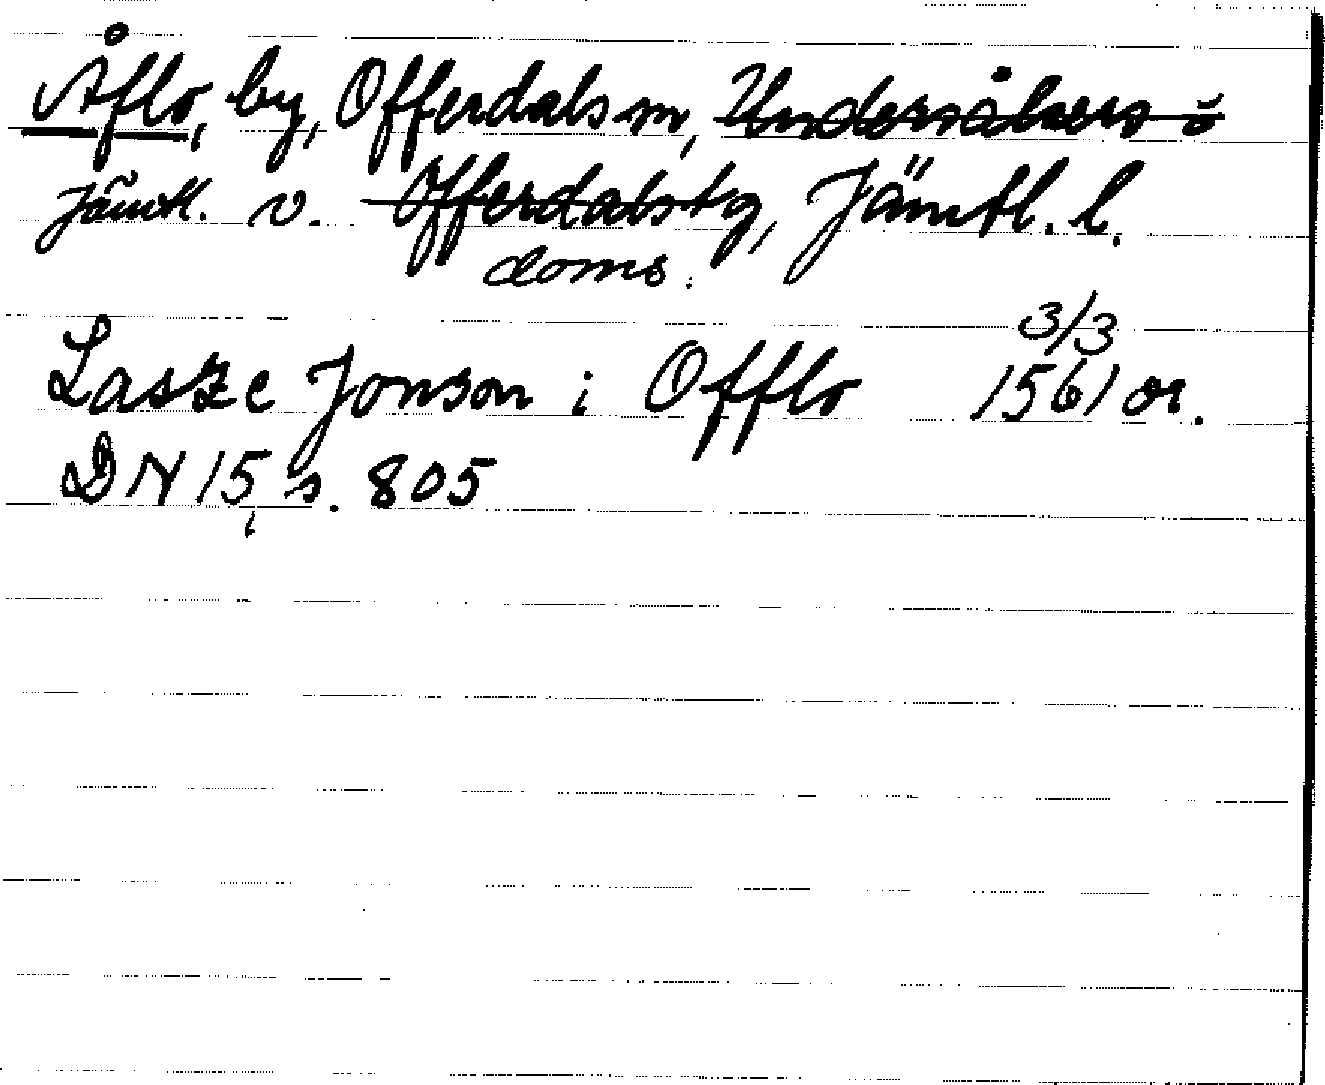 Åflo, by, Offerdals sn, Undersåkers o
Jämtl. v. Offerdals tg, Jämtl. l.
doms.
3/3
Lasze Jonson i Offlo 1561 or.
DN 15, s. 805
i